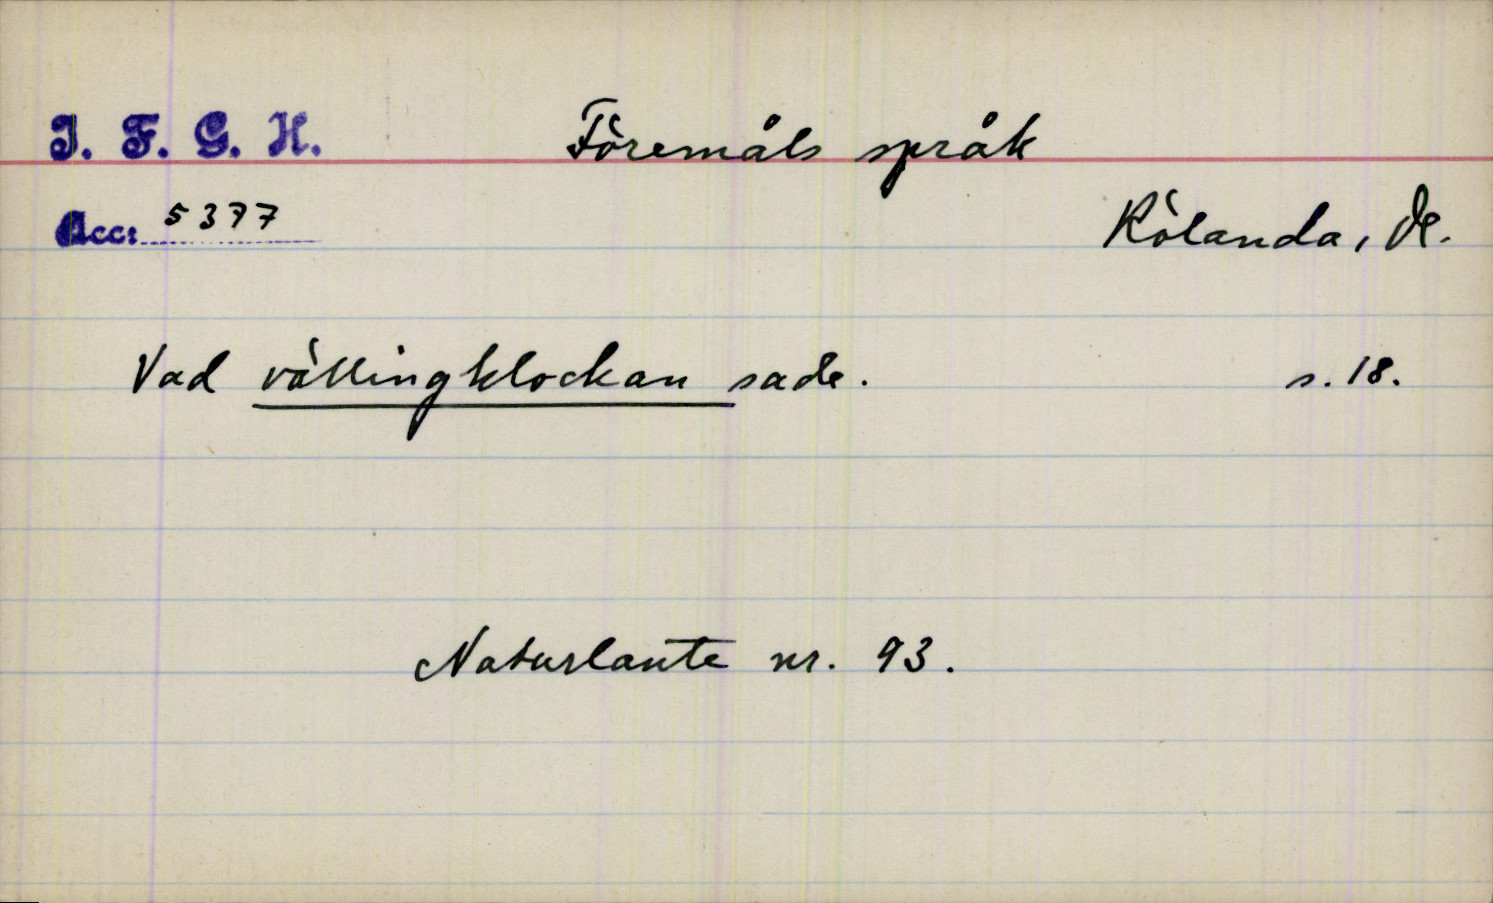 I. F. G. H.
Föremåls språk
Acc: 5377
Rölanda, Ds.
Vad vällingklockan sade. s. 18.
Naturlaute nr. 93.